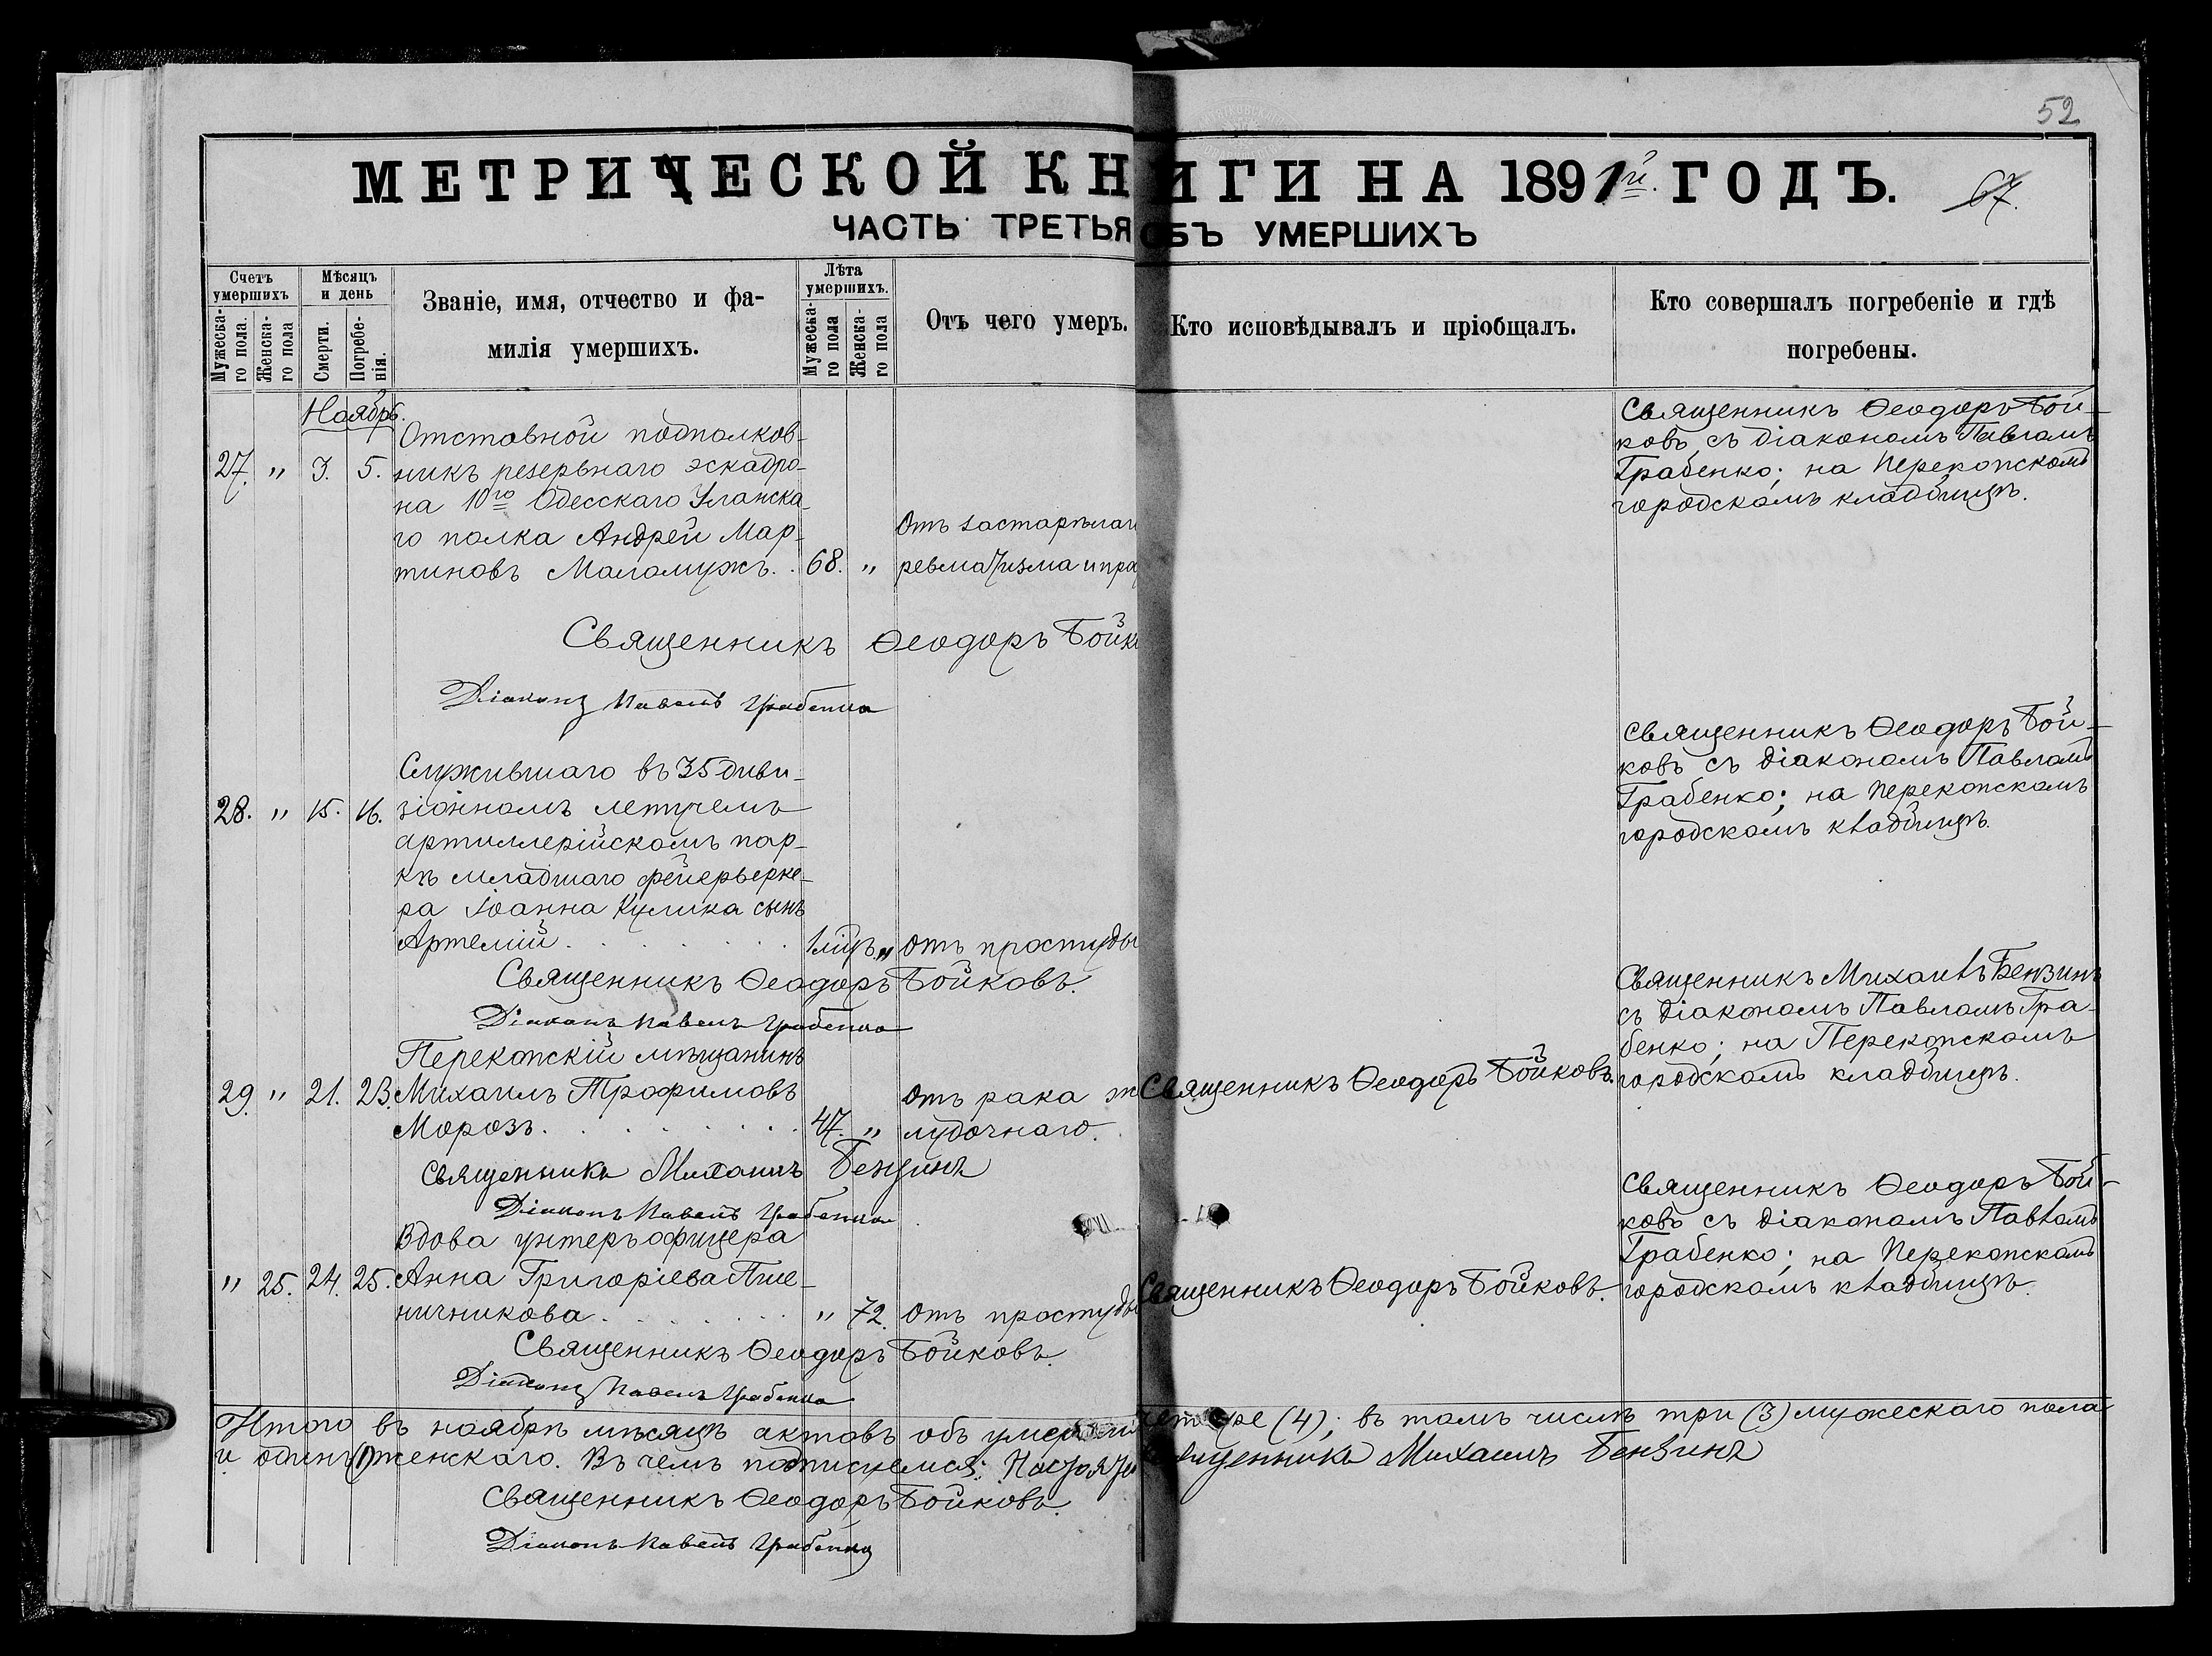 52
МЕТРИЧЕСКОЙ КНИГИ НА 1891й ГОДЪ.
67.
ЧАСТЬ ТРЕТЬЯ ОБЪ УМЕРШИХЪ
Счетъ умершихъ
Мужеска-го пола.
Женска-го пола
Мѣсяцъ и день
Смерти.
Погребе-нія.
Званіе, имя, отчество и фа-
милія умершихъ.
Лѣта умершихъ.
Мужеска-го пола
Женска-го пола
Отъ чего умеръ.
Кто исповѣдывалъ и пріобщалъ.
Кто совершалъ погребеніе и гдѣ
погребены.
Ноябрь.
Отставной подполков-
27. " 3. 5. никъ резервнаго эскадро-
на 10го Одесскаго Уланска-
го полка Андрей Мар-
тиновъ Маломужъ. . 68. "
Отъ застарѣлаг
ревматизма и
Священникъ Ѳеодоръ Бойк
Діаконъ Павелъ Грабенко
Священникъ Ѳеодоръ Бой-
ковъ съ діакономъ Павломъ
Грабенко; на Перекопскомъ
городскомъ кладбищѣ.
Служившаго въ 35 диви-
28. " 15. 16. зіонномъ летучемъ
артиллерійскомъ пар-
кѣ младшаго фейерверке-
ра Іоанна Кулика сынъ
Артемій . . . . . 1 мцъ. " Отъ простуды
Священникъ Ѳеодоръ Бойковъ.
Діаконъ Павелъ Грабенко
Священникъ Ѳеодоръ Бой-
ковъ съ діакономъ Павломъ
Грабенко; на Перекопскомъ
городскомъ кладбищѣ.
Перекопскій мѣщанинъ
29. " 21. 23. Михаилъ Трофимовъ
Морозъ. . . . . . 47. "
Отъ рака ж
лудочнаго.
Священникъ Ѳеодоръ Бойковъ.
Священникъ Михаилъ Бензинъ
съ діакономъ Павломъ Гра-
бенко; на Перекопскомъ
городскомъ кладбищѣ.
Священникъ Михаилъ Бензинъ
Діаконъ Павелъ Грабенко
Вдова унтеръ офицера
" 25. 24. 25. Анна Григоріева Пше-
ничникова . . . . . " 72. Отъ простуды
Священникъ Ѳеодоръ Бойковъ.
Священникъ Ѳеодоръ Бой-
ковъ съ діакономъ Павломъ
Грабенко; на Перекопскомъ
городскомъ кладбищѣ.
Священникъ Ѳеодоръ Бойковъ.
Діаконъ Павелъ Грабенко
Итого въ ноябрѣ мѣсяцѣ актовъ объ умерши четыре (4); въ томъ числѣ три (3) мужескаго пола
и одинъ (1) женскаго. Въ чемъ подписуемся: Священникъ Михаилъ Бензинъ
Священникъ Ѳеодоръ Бойковъ.
Діаконъ Павелъ Грабенко